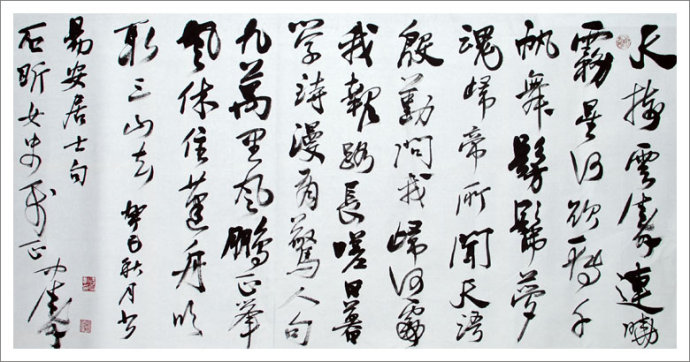 天接雲濤連曉
霧星河欲轉千
帆舞髣髴夢
魂歸帝所聞天語
殷勤問我歸何處
我報路長嗟日暮
学詩漫有驚人句
九萬里風鵬正舉
風休住蓬舟吹
取三山去 癸巳秋月书
易安居士句
石昕女史正